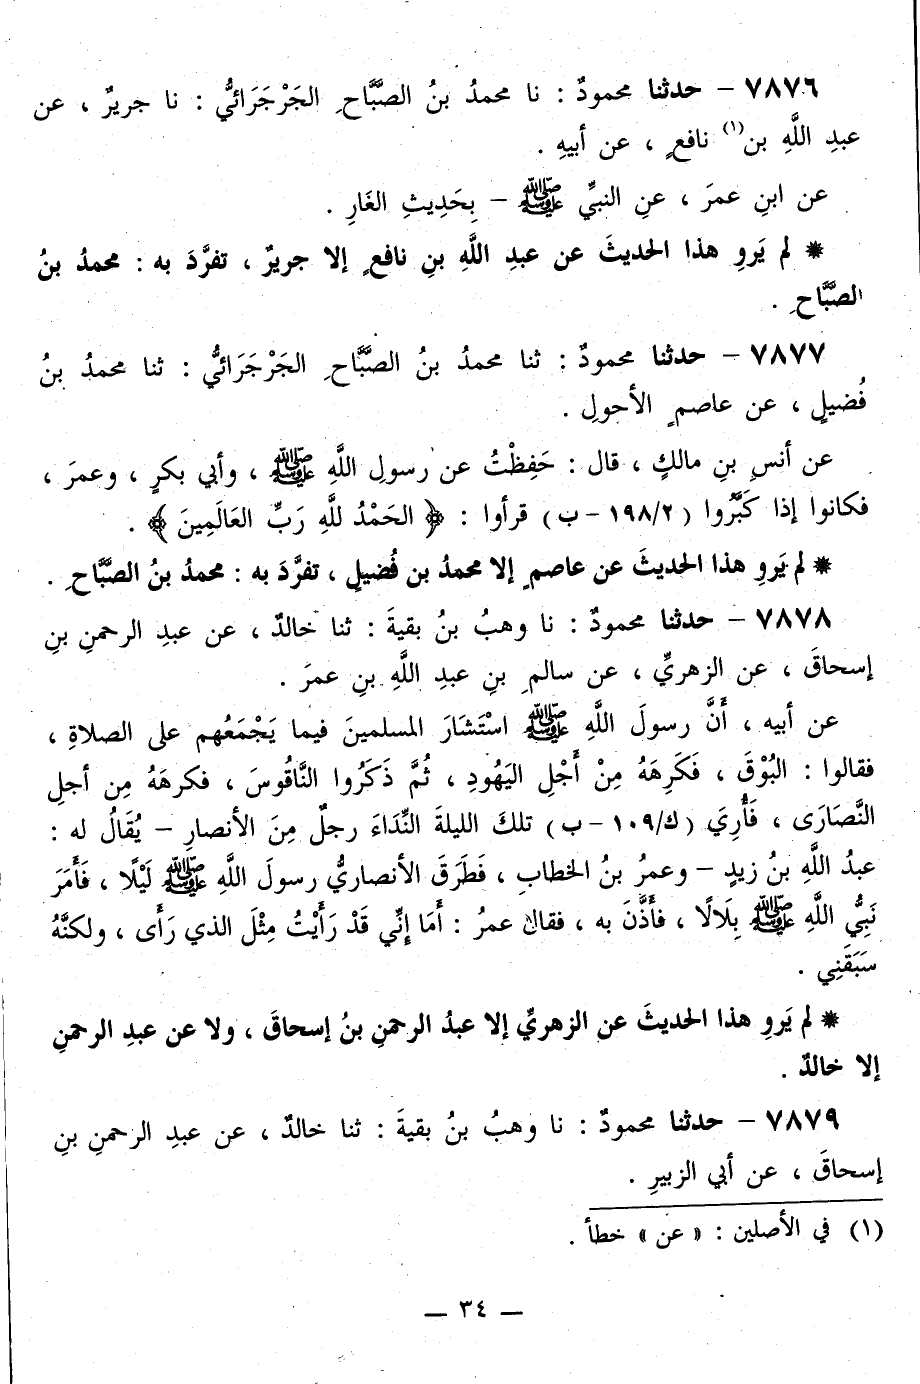 ٧٨٧٦ - حدثنا محمودٌ : نا محمدُ بنُ الصَّبَّاحِ الجَرْجَرَائيُّ : نا جريرٌ ، عن
عبدِ اللَّهِ بن(١) نافعٍ ، عن أبيهِ .
عن ابنِ عمرَ ، عنِ النبيِّ ﷺ - بِحَدِيثِ الغَارِ .
* لم يَروِ هذا الحديثَ عن عبدِ اللَّهِ بنِ نافعٍ إلا جريرٌ ، تفرَّدَ به : محمدُ بنُ
الصَّبَّاحِ .
٧٨٧٧ - حدثنا محمودٌ : ثنا محمدُ بنُ الصَّبَّاحِ الجَرْجَرَائيُّ : ثنا محمدُ بنُ
فُضيلٍ ، عن عاصمٍ الأحولِ .
عن أنسِ بنِ مالكٍ ، قال : حَفِظْتُ عن رسولِ اللَّهِ ﷺ ، وأبي بكرٍ ، وعمرَ ،
فكانوا إذا كَبَّرُوا (١٩٨/٢ - ب) قرأوا : ﴿ الحَمْدُ للَّهِ رَبِّ العَالَمِينَ ﴾ .
* لم يَروِ هذا الحديثَ عن عاصمٍ إلا محمدُ بن فُضيلٍ ، تفرَّدَ به : محمدُ بنُ الصَّبَّاحِ .
٧٨٧٨ - حدثنا محمودٌ : نا وهبُ بنُ بقيةَ : ثنا خالدٌ ، عن عبدِ الرحمنِ بنِ
إسحاقَ ، عن الزهريِّ ، عن سالمِ بنِ عبدِ اللَّهِ بنِ عمرَ .
عن أبيه ، أَنَّ رسولَ اللَّهِ ﷺ اسْتَشَارَ المسلمينَ فيما يَجْمَعُهم على الصلاةِ ،
فقالوا : البُوْقَ ، فَكَرِهَهُ مِنْ أَجْلِ اليَهُودِ ، ثُمَّ ذَكَرُوا النَّاقُوسَ ، فكرهَهُ مِن أجلِ
النَّصَارَى ، فَأُرِيَ (ك/١٠٩ - ب) تلكَ الليلةَ النِّدَاءَ رجلٌ مِنَ الأنصارِ - يُقَالُ له :
عبدُ اللَّهِ بنُ زيدٍ - وعمرُ بنُ الخطابِ ، فَطَرَقَ الأنصاريُّ رسولَ اللَّهِ ﷺ لَيْلًا ، فَأَمَرَ
نَبِيُّ اللَّهِ ﷺ بِلَالًا ، فأَذَّنَ به ، فقال عمرُ : أَمَا إنِّي قَدْ رَأَيْتُ مِثْلَ الذي رَأَى ، ولكنَّهُ
سَبَقَنِي .
* لم يَروِ هذا الحديثَ عن الزهريِّ إلا عبدُ الرحمنِ بنُ إسحاقَ ، ولا عن عبدِ الرحمنِ
إلا خالدٌ .
٧٨٧٩ - حدثنا محمودٌ : نا وهبُ بنُ بقيةَ : ثنا خالدٌ ، عن عبدِ الرحمنِ بنِ
إسحاقَ ، عن أبي الزبيرِ .
(١) في الأصلين : « عن » خطأ .
— ٣٤ —